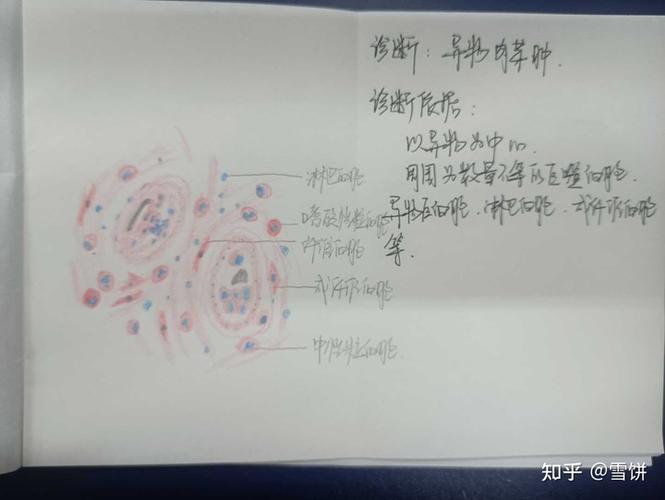 诊断：异物肉芽肿．
诊断依据：
以异物为中心．
周围为数量不等的巨噬细胞．
异物巨细胞．淋巴细胞．成纤维细胞
等．
淋巴细胞
嗜酸性粒细胞
纤维细胞
成纤维细胞
中性粒细胞．
知乎 @雪饼